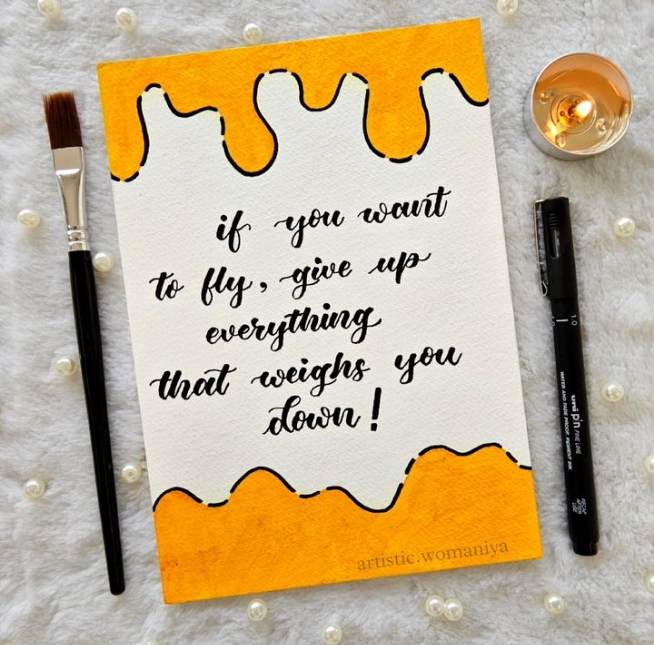 if you want
to fly, give up
everything
that weighs you
down!
artistic.womaniya
1.0
uni pin FINE LINE
WATER AND FADE PROOF, PIGMENT INK